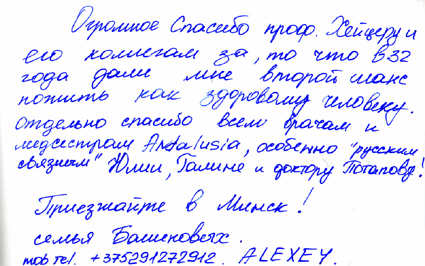 Огромное Спасибо проф. Хейцеру и
его коллегам за, то что в 32
года дали мне второй шанс
пожить как здоровому человеку.
Отдельно спасибо всем врачам и
медсестрам Andalusia, особенно "русским
связным" Юлии, Галине и доктору Потапову!
Приезжайте в Минск!
семья
mob tel. +375291272912. ALEXEY.